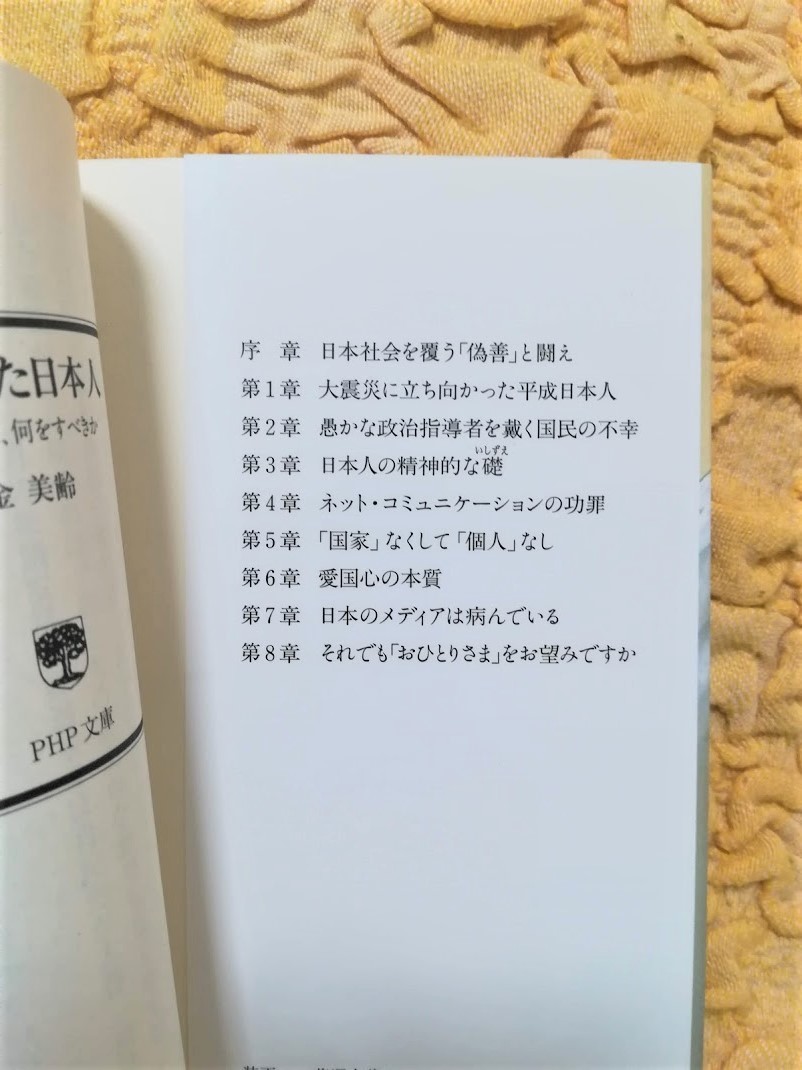 た日本人
、何をすべきか
金 美齢
PHP文庫
序　章　日本社会を覆う「偽善」と闘え
第1章　大震災に立ち向かった平成日本人
第2章　愚かな政治指導者を戴く国民の不幸
いしずえ
第3章　日本人の精神的な礎
第4章　ネット・コミュニケーションの功罪
第5章　「国家」なくして「個人」なし
第6章　愛国心の本質
第7章　日本のメディアは病んでいる
第8章　それでも「おひとりさま」をお望みですか